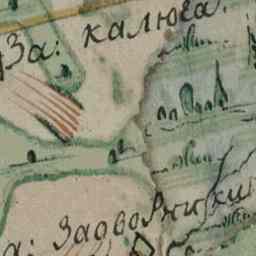 За: калюга.
а: Задворники